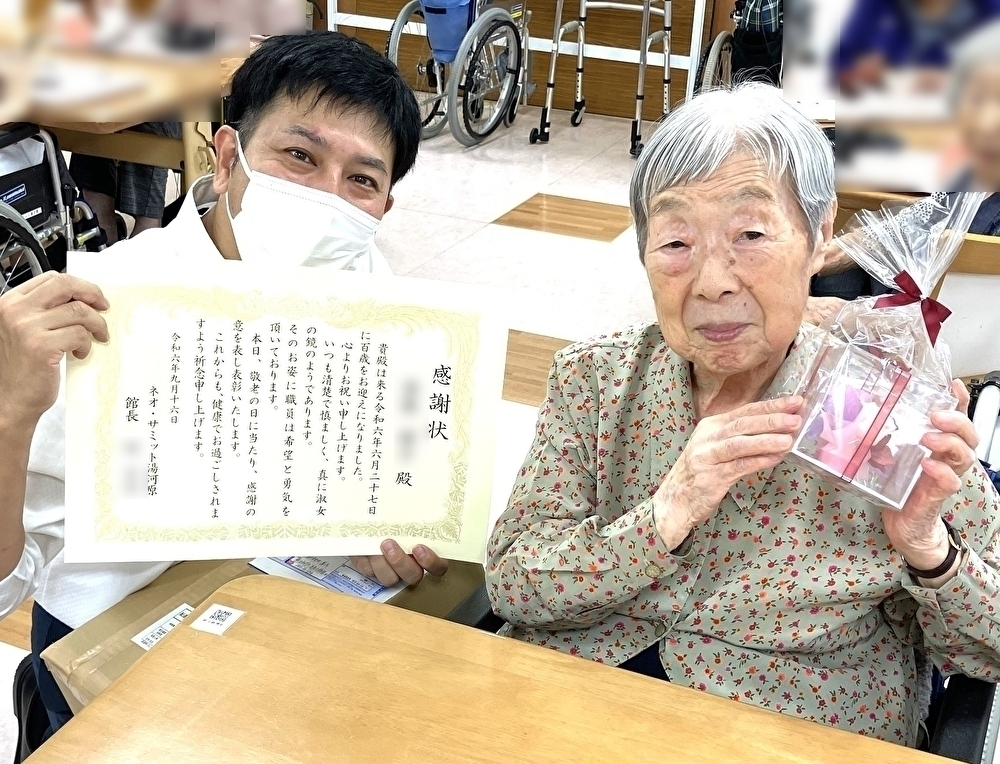 感謝状
殿
貴殿は来る令和六年六月二十七日
に百歳をお迎えになりました。
心よりお祝い申し上げます。
いつも清楚で慎ましく、真に淑女
の鏡のようであります。
そのお姿に職員は希望と勇気を
頂いております。
本日、敬老の日に当たり、感謝の
意を表し表彰いたします。
これからも、健康でお過ごしされま
すよう祈念申し上げます。
令和六年九月十六日
ネオ・サミット湯河原
館長